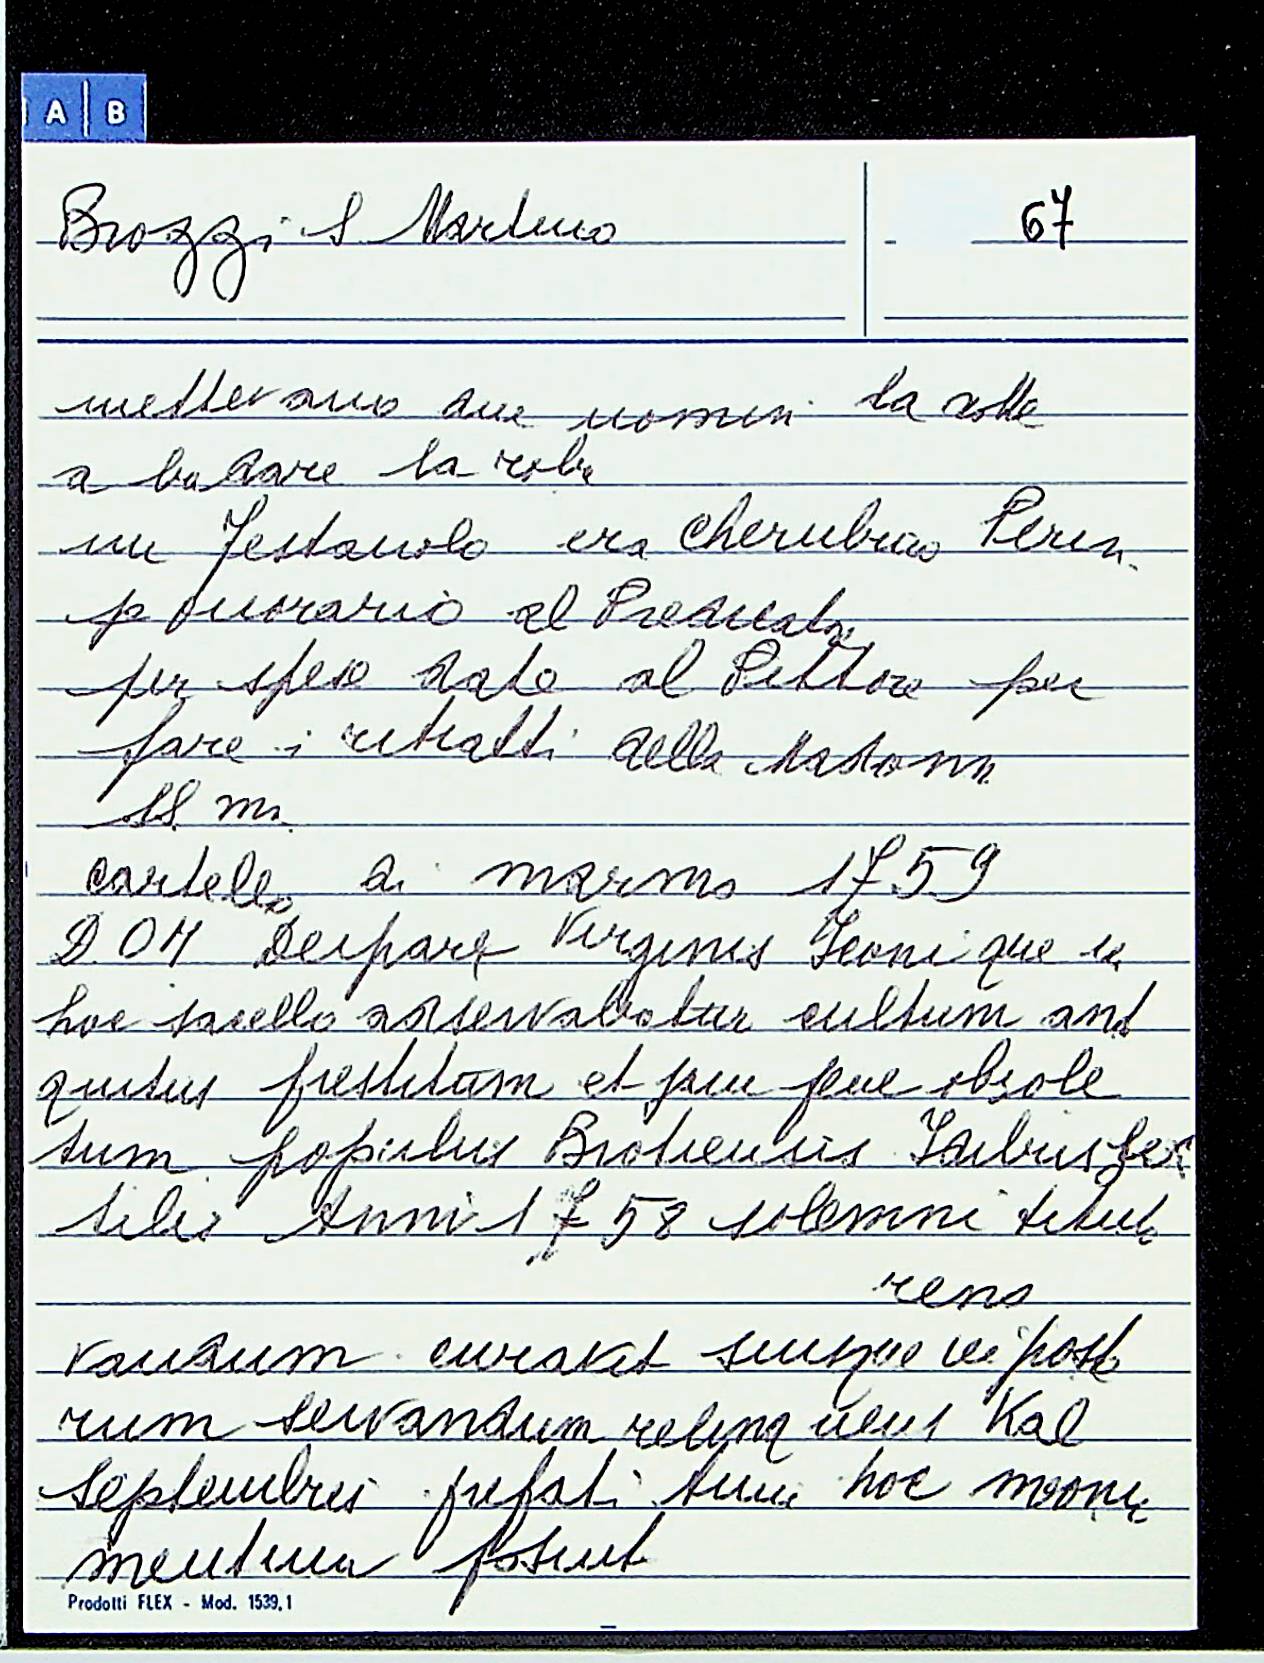 A B
Brozzi S Martino
67
mettevano due uomini la notte
a badare la roba
un Festaiolo era Cherubino Perin
p onorario al Predicato
per spese dato al Pittore per
fare i ritratti della Madonn
SS. ma
cartello di marmo 1759
D.O.M Deipare Virginis Iconi que in
hoc sacello adservabatur cultum anti
quitus prestitum et jam pene obsole
tum populus Brotiensis Idibus Sex
tilis Anni 1758 solemni titulo
reno
vandum curavit suisque in poste
rum servandum relinquens Kal
Septembris prefati Anni hoc monu
mentum posuit
Prodotti FLEX - Mod. 1539.1